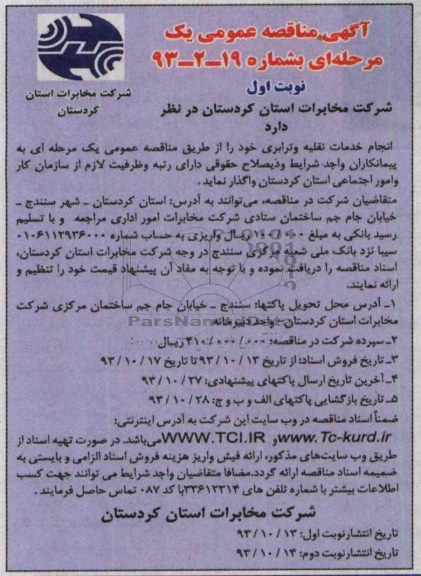 آگهی مناقصه عمومی یک
مرحله‌ای بشماره ۱۹-۲-۹۳
نوبت اول
شرکت مخابرات استان
کردستان
شرکت مخابرات استان کردستان در نظر
دارد
انجام خدمات نقلیه وترابری خود را از طریق مناقصه عمومی یک مرحله ای به
پیمانکاران واجد شرایط وذیصلاح حقوقی دارای رتبه وظرفیت لازم از سازمان کار
وامور اجتماعی استان کردستان واگذار نماید.
متقاضیان شرکت در مناقصه، می‌توانند به آدرس: استان کردستان - شهر سنندج -
خیابان جام جم ساختمان ستادی شرکت مخابرات امور اداری مراجعه و با تسلیم
رسید بانکی به مبلغ ۱۰۰/۰۰۰ ریال واریزی به حساب شماره ۰۱۰۶۱۱۲۹۳۶۰۰۰
سیبا نزد بانک ملی شعبه مرکزی سنندج در وجه شرکت مخابرات استان کردستان،
اسناد مناقصه را دریافت نموده و با توجه به مفاد آن پیشنهاد قیمت خود را تنظیم و
ارائه نمایند.
۱- آدرس محل تحویل پاکتها: سنندج - خیابان جام جم ساختمان مرکزی شرکت
مخابرات استان کردستان - واحد دبیرخانه
۲- سپرده شرکت در مناقصه: ۴۱۰/۰۰۰/۰۰۰ ریال
۳- تاریخ فروش اسناد: از تاریخ ۹۳/۱۰/۱۳ تا تاریخ ۹۳/۱۰/۱۷
۴- آخرین تاریخ ارسال پاکتهای پیشنهادی: ۹۳/۱۰/۲۷
۵- تاریخ بازگشایی پاکتهای الف و ب و ج: ۹۳/۱۰/۲۸
ضمناً اسناد مناقصه در وب سایت این شرکت به آدرس اینترنتی:
www.Tc-kurd.ir و WWW.TCI.IR می‌باشد. در صورت تهیه اسناد از
طریق وب سایت‌های مذکور، ارائه فیش واریز هزینه فروش اسناد الزامی و بایستی به
ضمیمه اسناد مناقصه ارائه گردد. مضافا متقاضیان واجد شرایط می توانند جهت کسب
اطلاعات بیشتر با شماره تلفن های ۳۳۶۱۲۳۱۴ با کد ۰۸۷ تماس حاصل فرمایند.
شرکت مخابرات استان کردستان
تاریخ انتشار نوبت اول: ۹۳/۱۰/۱۳
تاریخ انتشار نوبت دوم: ۹۳/۱۰/۱۴